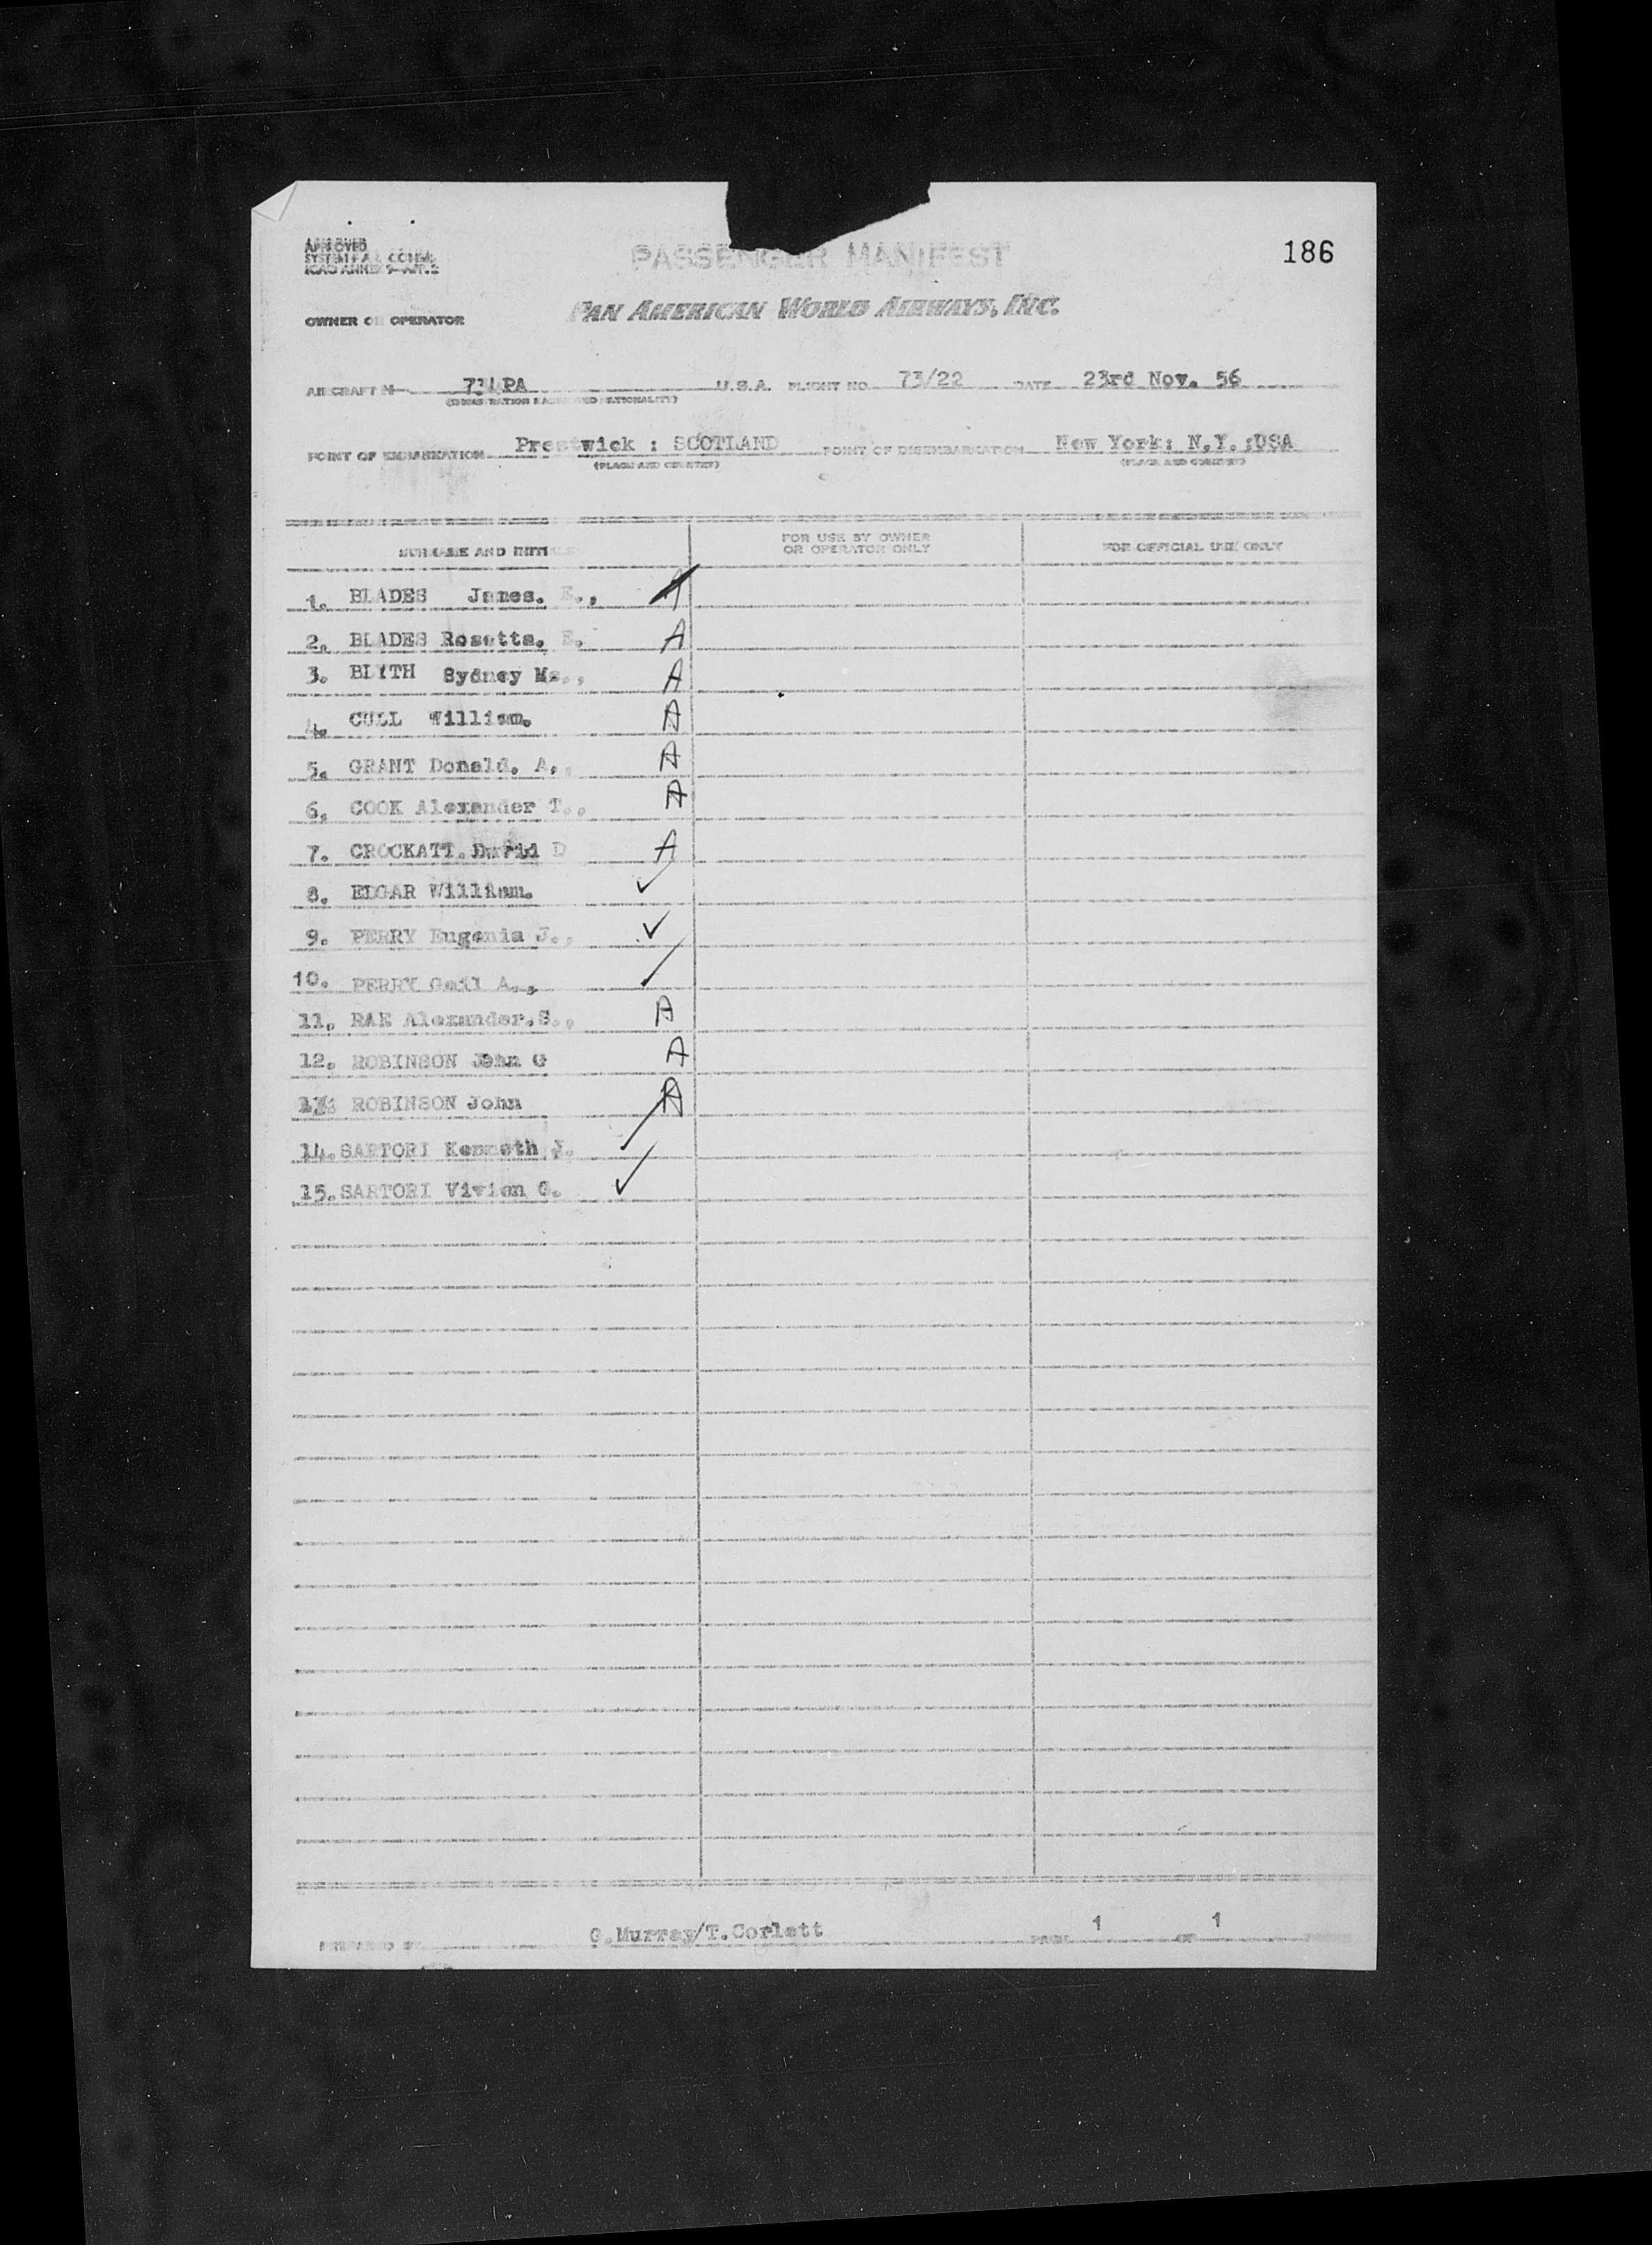 186
APPROVED
ICAO ANNEX 9-APP. 2
PASSENGER MANIFEST
OWNER OR OPERATOR PAN AMERICAN WORLD AIRWAYS, INC.
AIRCRAFT N U.S.A. FLIGHT NO. 73/22 DATE 23rd Nov. 56
(REGISTRATION MARKS AND NATIONALITY)
POINT OF EMBARKATION Prestwick : SCOTLAND POINT OF DISEMBARKATION New York: N.Y. :USA
(PLACE AND COUNTRY) (PLACE AND COUNTRY)
SURNAME AND INITIALS FOR USE BY OWNER OR OPERATOR ONLY FOR OFFICIAL USE ONLY
1. BLADES James. E., A
2. BLADES Rosetta. E. A
3. BLYTH Sydney A
4. CULL William. A
5. GRANT Donald. A., A
6. COOK Alexander T., A
7. CROCKATT. David D A
8. EDGAR William. ✓
9. PERRY Eugenia J., ✓
10. PERRY Gail A., ✓
11. RAE Alexander.S., A
12. ROBINSON John G A
13. ROBINSON John A
14. SARTORI Kenneth J. ✓
15. SARTORI Vivian G. ✓
PREPARED BY G.Murray/T.Corlett PAGE 1 OF 1 PAGES